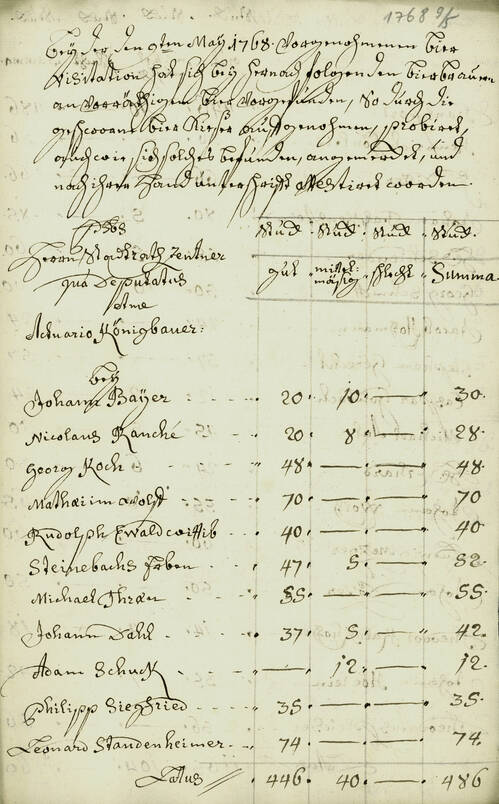 1768
beÿ der den 9ten Maÿ 1768. vorgenohmenen bier
Visitation hat sich beÿ hernach folgenden bierbrauern
an vorräthigem bier vorgefunden, so durch die
geschworne bier Kieser auffgenohmen, probiret,
auch wie sich solches befunden, angemercket, und
nach ihrer handunterschrifft attestiret worden.
Stück Stück Stück Stück
Herrn Stadtrath Zentner
gut mittel-mäsig schlecht Summa
qua Deputatus
Actuario Königbauer:
beÿ
Johann Baÿer 20. 10. — 30.
Nicolaus Ranché 20. 8. — 28.
Georg Koch 48. — — 48.
Mathæi im Wolff 70. — — 70
Rudolph Ewald wittib 40. — — 40.
Steinebachs Erben 47. 5. — 52.
Michael Thræn 55. — — 55.
Johann Dahl 37. 5. — 42.
Adam Schuck — 12. — 12.
Philipp Siegfried 35. — — 35.
Leonard Standenheimer 74. — — 74.
Latus 446. 40. — 486